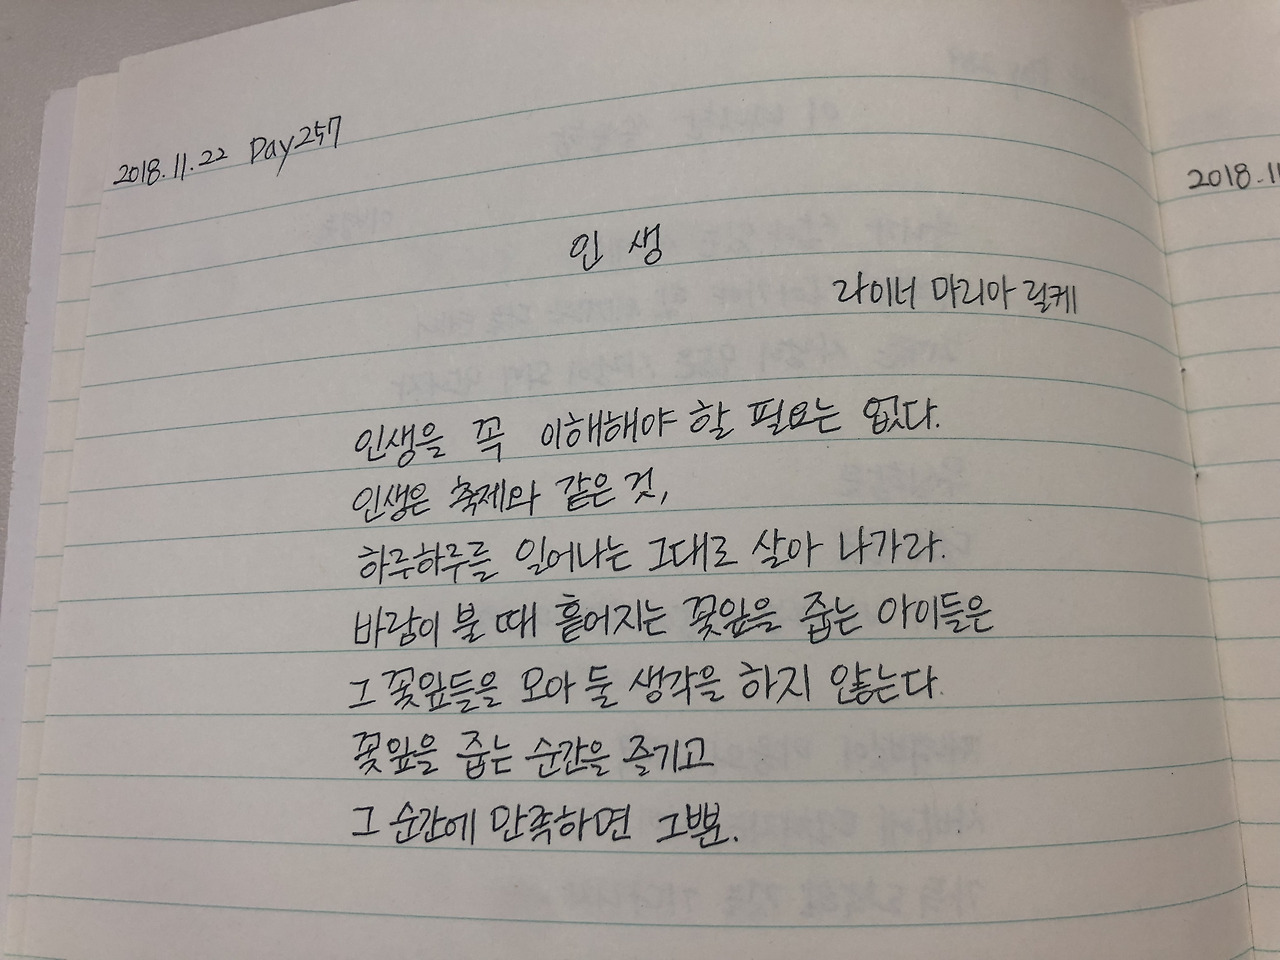 2018.11.22 Day257
인생
라이너 마리아 릴케
인생을 꼭 이해해야 할 필요는 없다.
인생은 축제와 같은 것,
하루하루를 일어나는 그대로 살아 나가라.
바람이 불 때 흩어지는 꽃잎을 줍는 아이들은
그 꽃잎들을 모아 둘 생각을 하지 않는다.
꽃잎을 줍는 순간을 즐기고
그 순간에 만족하면 그뿐.
2018.11